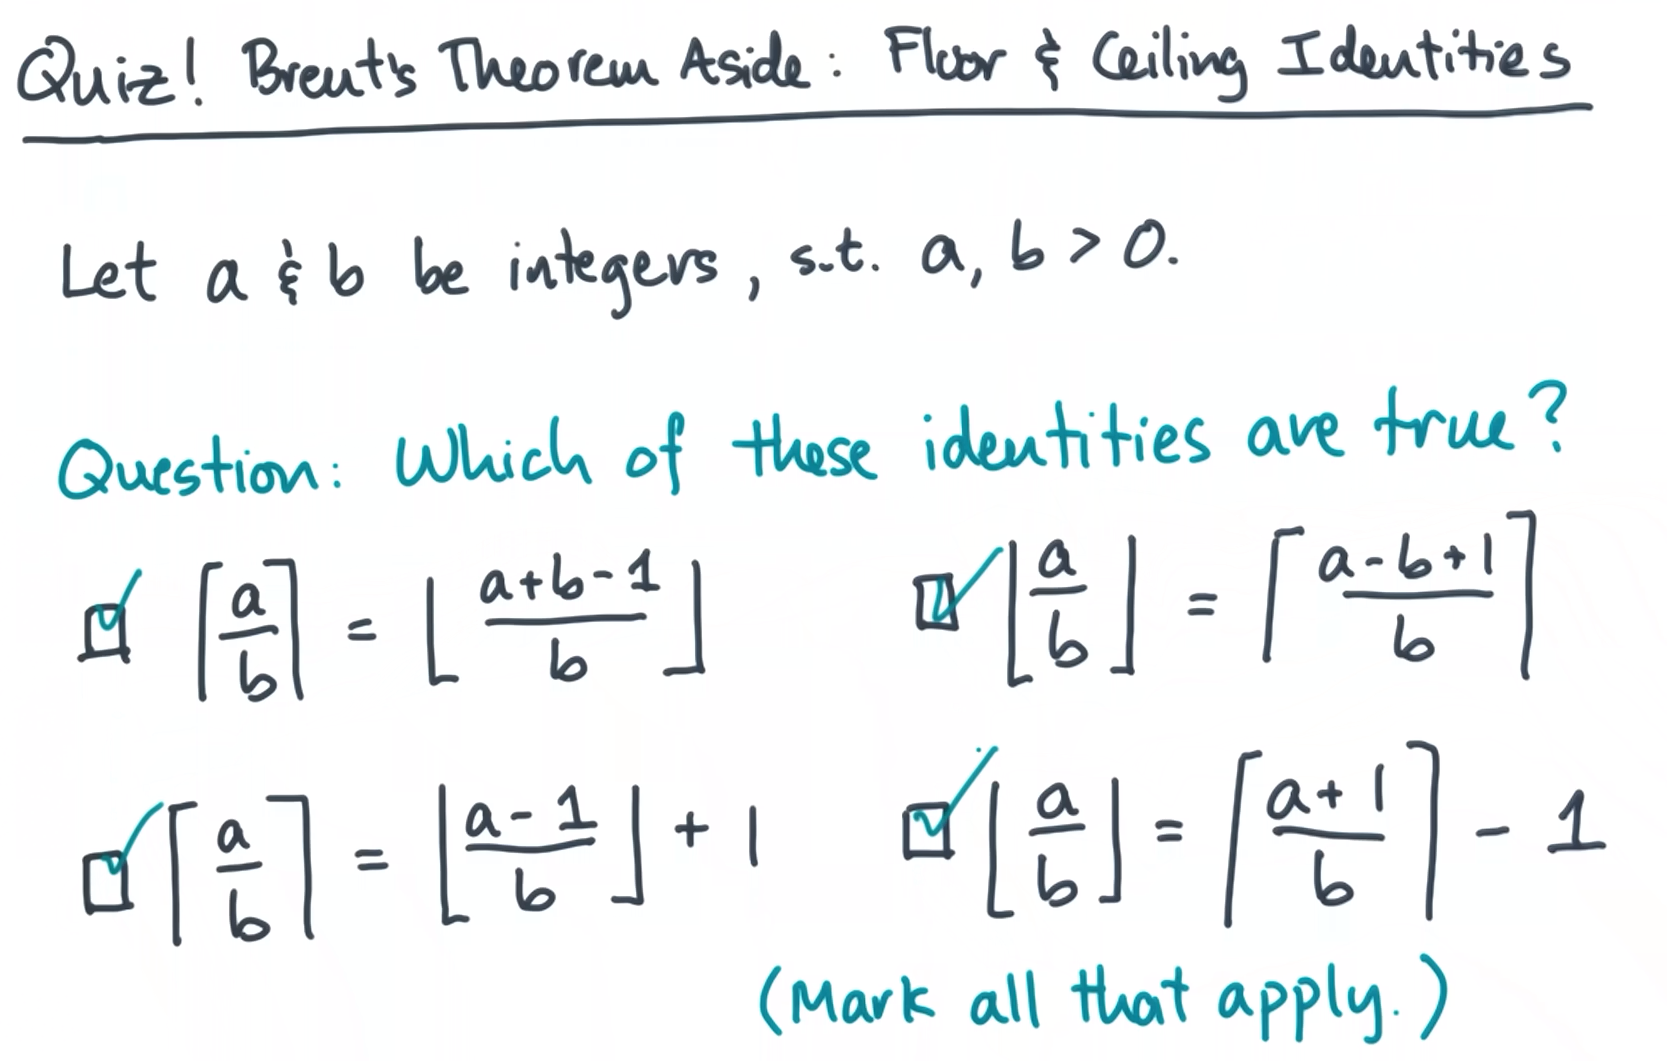 Quiz! Brent's Theorem Aside: Floor & Ceiling Identities
Let a & b be integers, s.t. a, b > 0.
Question: Which of these identities are true?
☑ ⌈a/b⌉ = ⌊(a+b-1)/b⌋ ☑ ⌊a/b⌋ = ⌈(a-b+1)/b⌉
☑ ⌈a/b⌉ = ⌊(a-1)/b⌋ + 1 ☑ ⌊a/b⌋ = ⌈(a+1)/b⌉ - 1
(Mark all that apply.)